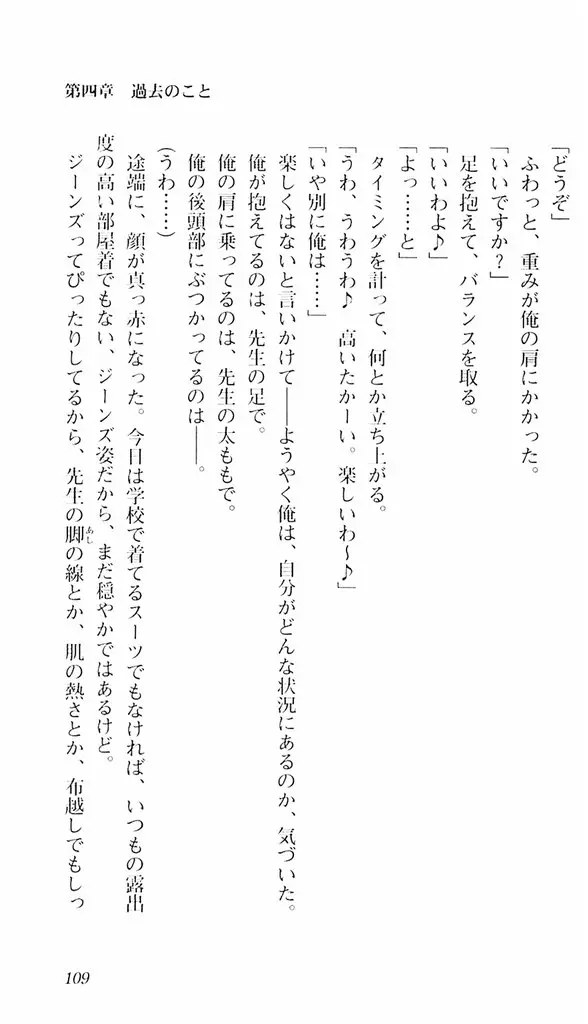 第四章　過去のこと
「どうぞ」
ふわっと、重みが俺の肩にかかった。
「いいですか？」
足を抱えて、バランスを取る。
「いいわよ♪」
「よっ……と」
タイミングを計って、何とか立ち上がる。
「うわ、うわうわ♪　高いたかーい。楽しいわ～♪」
「いや別に俺は……」
楽しくはないと言いかけて――ようやく俺は、自分がどんな状況にあるのか、気づいた。
俺が抱えてるのは、先生の足で。
俺の肩に乗ってるのは、先生の太ももで。
俺の後頭部にぶつかってるのは――。
（うわ……）
途端に、顔が真っ赤になった。今日は学校で着てるスーツでもなければ、いつもの露出
度の高い部屋着でもない、ジーンズ姿だから、まだ穏やかではあるけど。
ジーンズってぴったりしてるから、先生の脚の線とか、肌の熱さとか、布越しでもしっ
あし
109